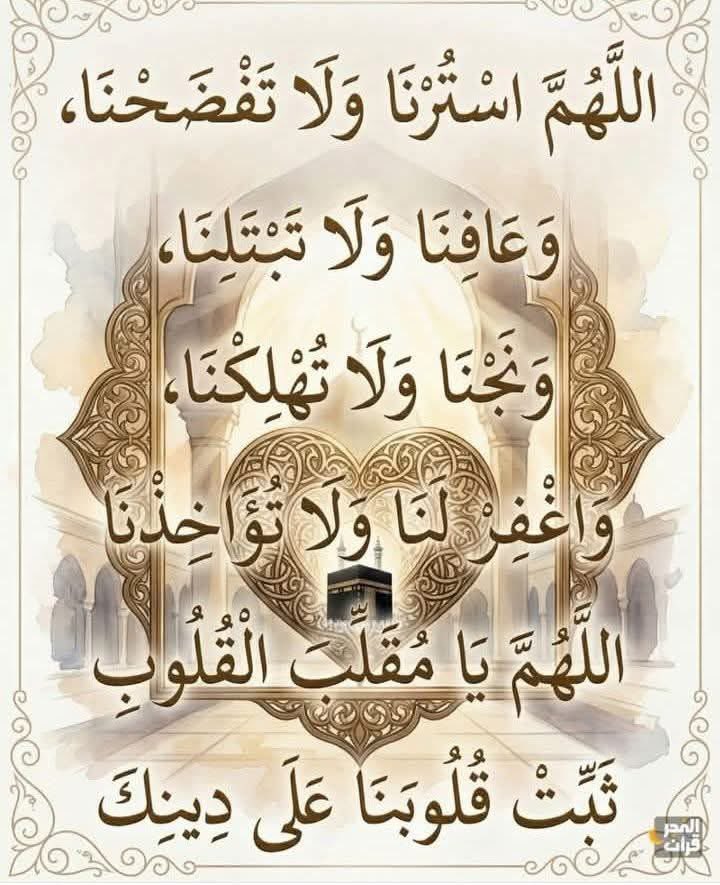 اللَّهُمَّ اسْتُرْنَا وَلَا تَفْضَحْنَا،
وَعَافِنَا وَلَا تَبْتَلِنَا،
وَنَجْنَا وَلَا تُهْلِكْنَا،
وَاغْفِرْ لَنَا وَلَا تُؤَاخِذْنَا
اللَّهُمَّ يَا مُقَلِّبَ الْقُلُوبِ
ثَبِّتْ قُلُوبَنَا عَلَى دِينِكَ